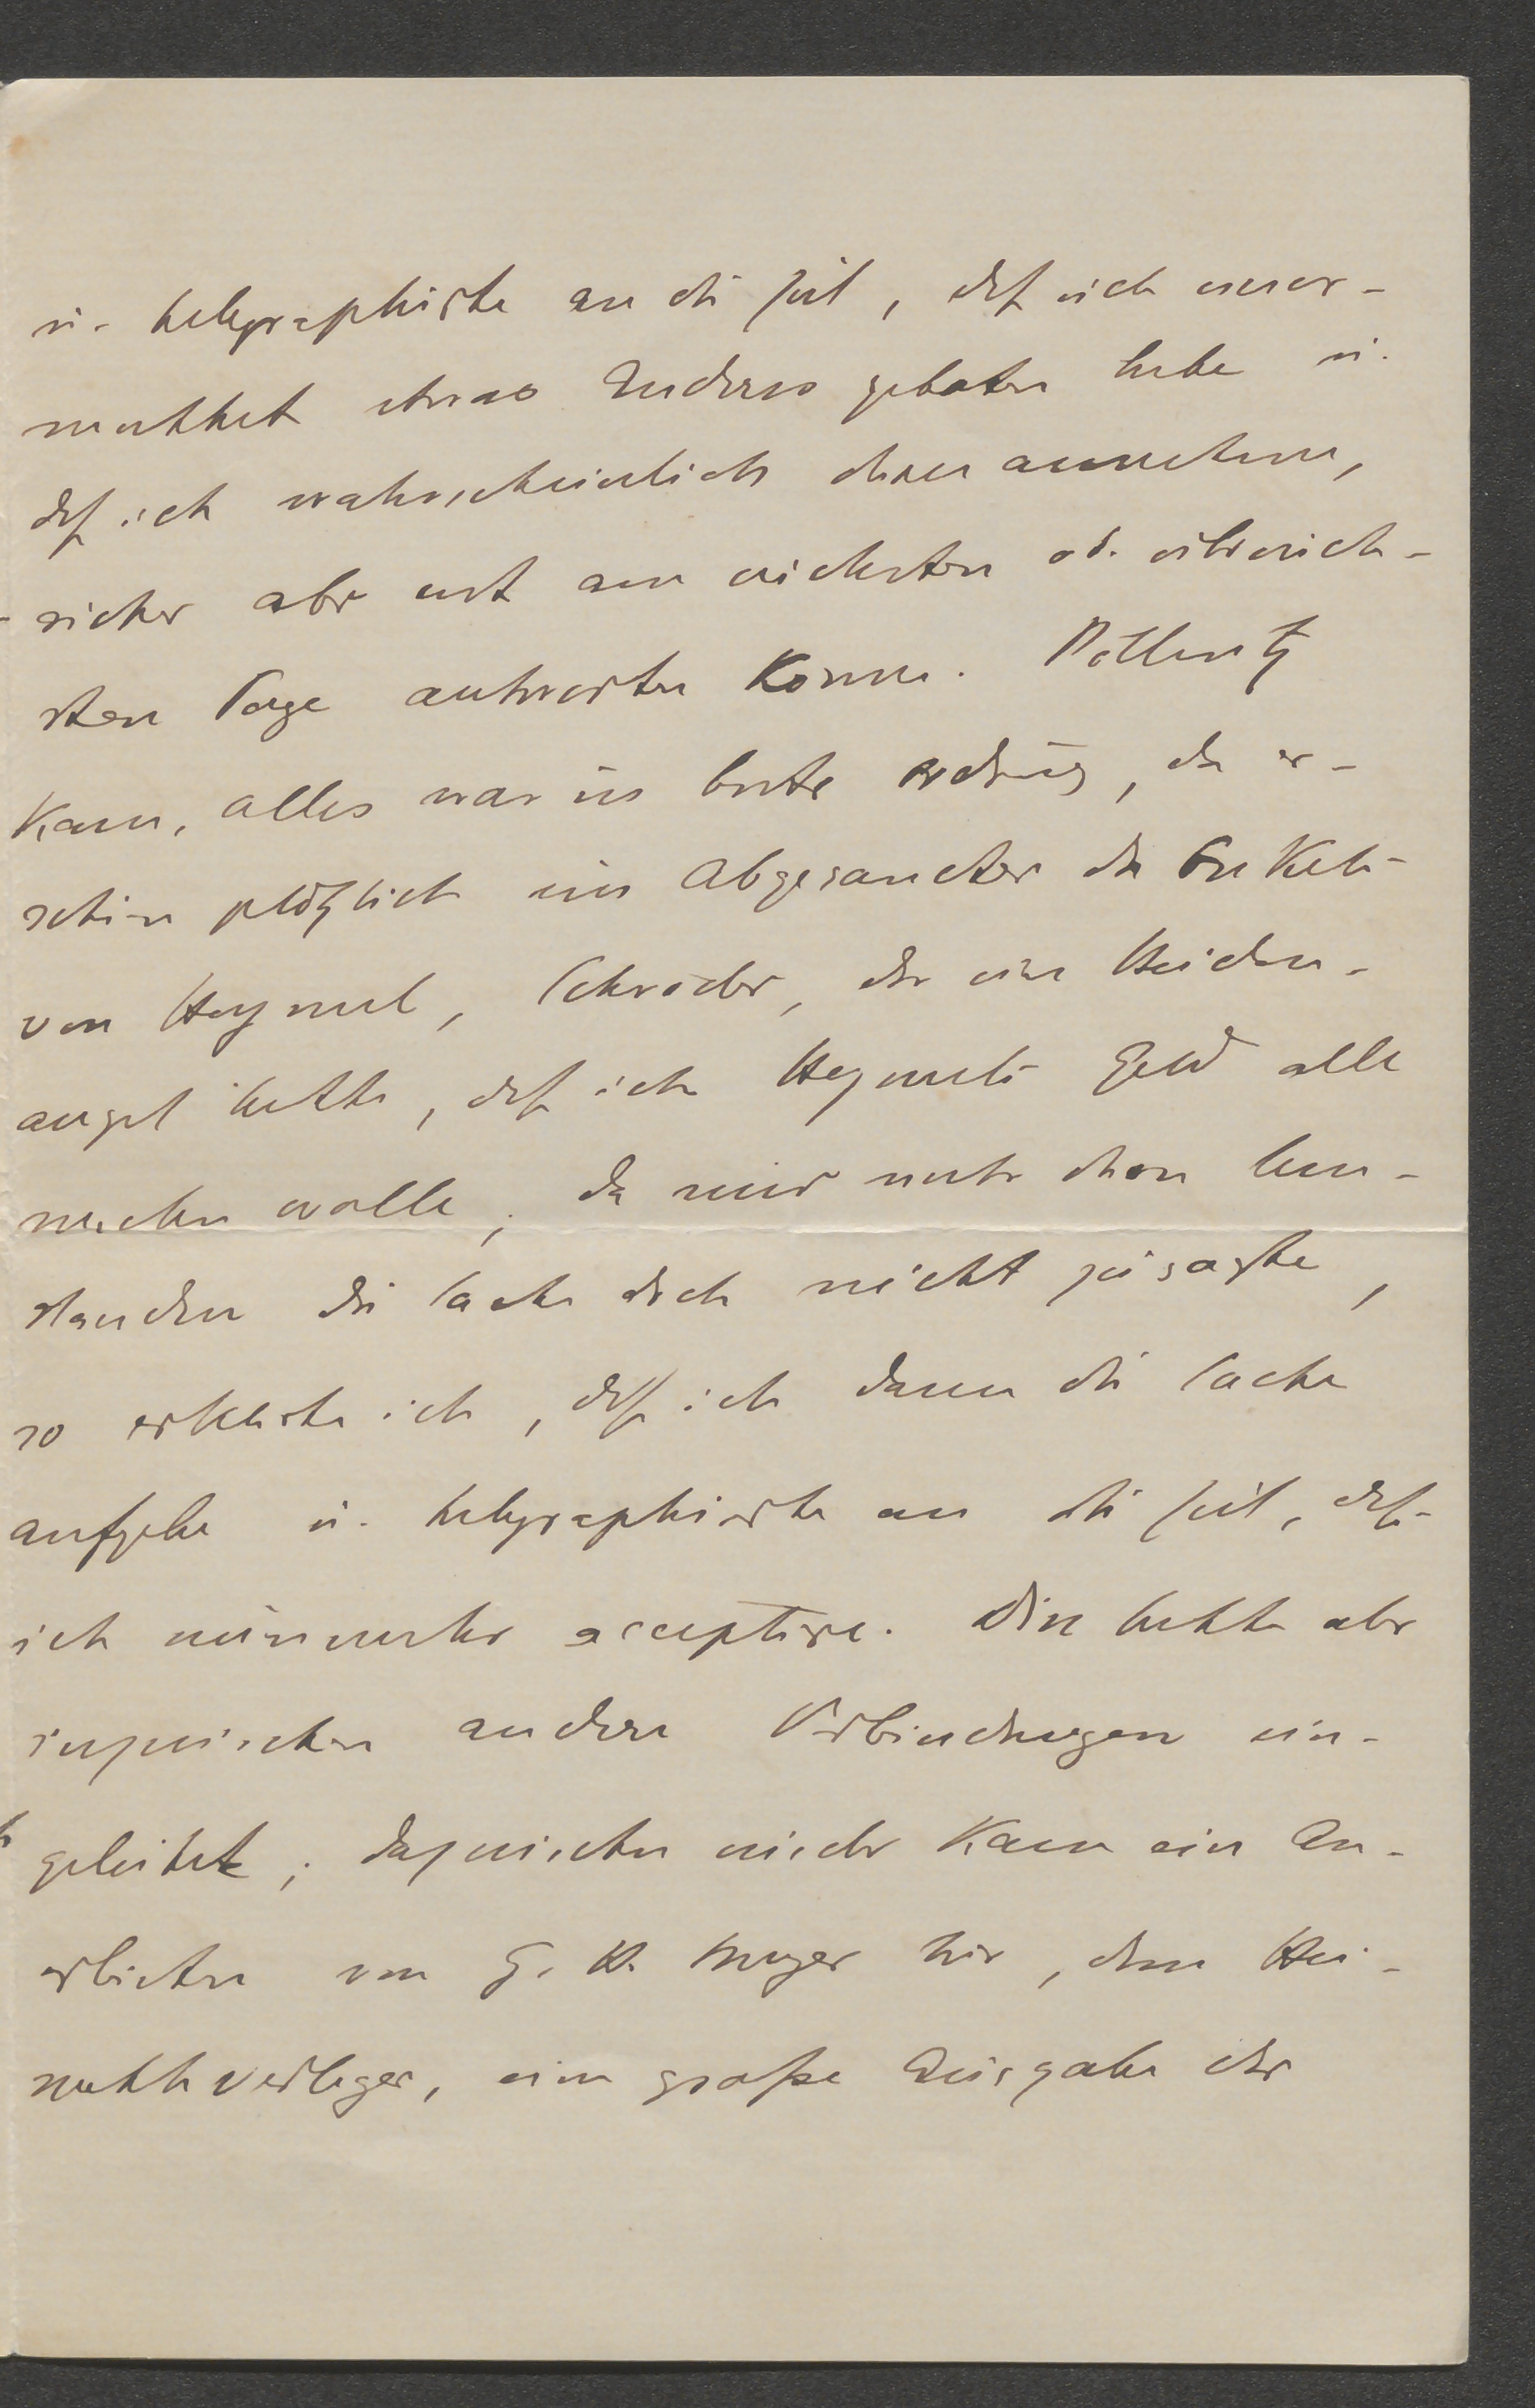 u. telegraphirte an die Zeit, daß sich uner-
wartet etwas Anderes geboten habe u.
daß ich wahrscheinlich dieses annehme,
sicher aber erst am nächsten od. übernäch-
sten Tage antworten könne. Pollwitz
kam, alles war in bester Ordnung, da er-
schien plötzlich ein Abgesandter des Onkels
von Heymel, Schröder, der eine Heiden-
angst hatte, daß ich Heymels Geld alle
machen wolle; da mir unter diesen Um-
ständen die Sache doch nicht zusagte,
so erklärte ich, daß ich dann die Sache
aufgebe u. telegraphirte an die Zeit, daß
ich nunmehr acceptire. Diese hatte aber
inzwischen andere Verbindungen ein-
geleitet; dazwischen wieder kam ein An-
erbieten von G. H. Meyer hier, dem Hei-
mathverleger, eine große Ausgabe der